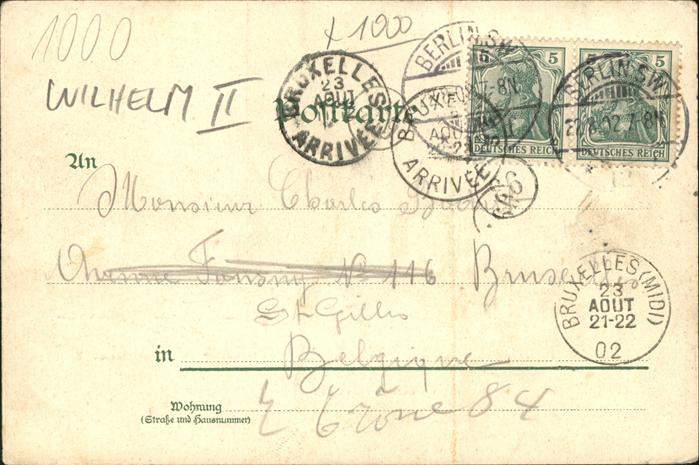 1000
x 1000
WILHELM II
Postkarte
BRUXELLES
23
AOUT
ARRIVÉE
BERLIN.SW
7-8N.
BRUXELLES
AOUT
ARRIVÉE
5
DEUTSCHES REICH
5
DEUTSCHES REICH
BERLIN.SW
02.7-8N.
An
Monsieur Charles
Avenue Fonsny No 116 Bruxelles
St Gilles
in Belgique
BRUXELLES (MIDI)
23
AOUT
21-22
02
Wohnung
(Straße und Hausnummer)
84